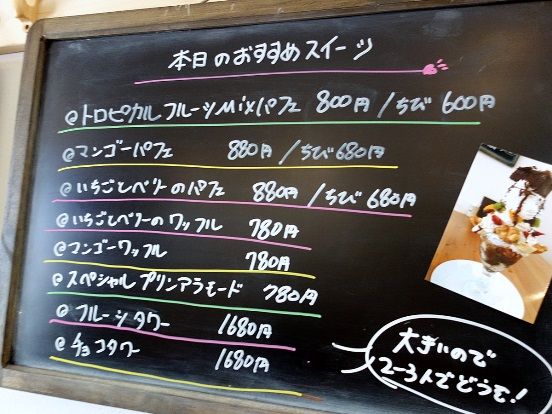 本日のおすすめスイーツ
@トロピカルフルーツMixパフェ 800円/ちび600円
@マンゴーパフェ 880円/ちび680円
@いちごとベリーのパフェ 880円/ちび680円
@いちごとベリーのワッフル 780円
@マンゴーワッフル 780円
@スペシャルプリンアラモード 780円
@フルーツタワー 1680円
@チョコタワー 1680円
大きいので
2~3人でどうぞ!